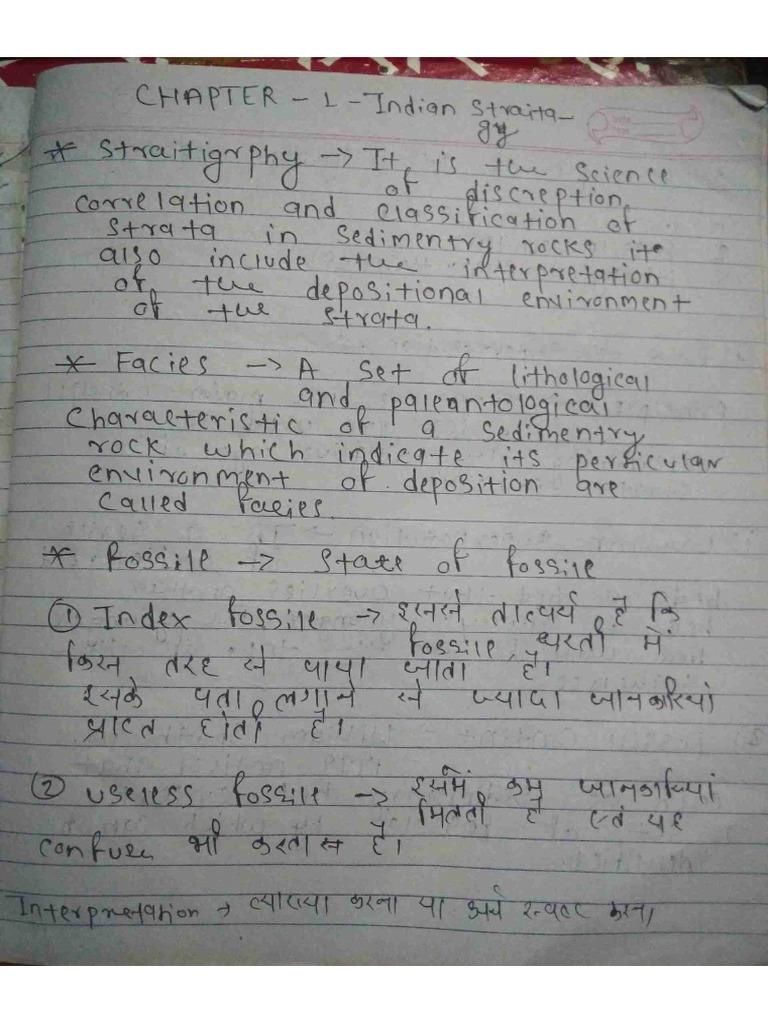 CHAPTER - 1 - Indian Straita-
gy
* Straitigrphy → It is the Science
of discreption,
correlation and classification of
strata in sedimentry rocks its
also include the interpretation
of the depositional environment
of the strata.
* Facies → A set of lithological
and paleantological
characteristic of a sedimentry
rock which indicate its perticular
environment of deposition are
called facies.
* Fossile → State of fossile
① Index fossile → इससे तात्पर्य है कि
fossile, धरती में
किस तरह से पाया जाता है।
इसके पता लगाने से ज्यादा जानकारियां
प्राप्त होती है।
② useless fossile → इसमें कम जानकारियां
मिलती है एवं यह
confuse भी करता है।
Interpretation → व्याख्या करना या अर्थ स्पष्ट करना।